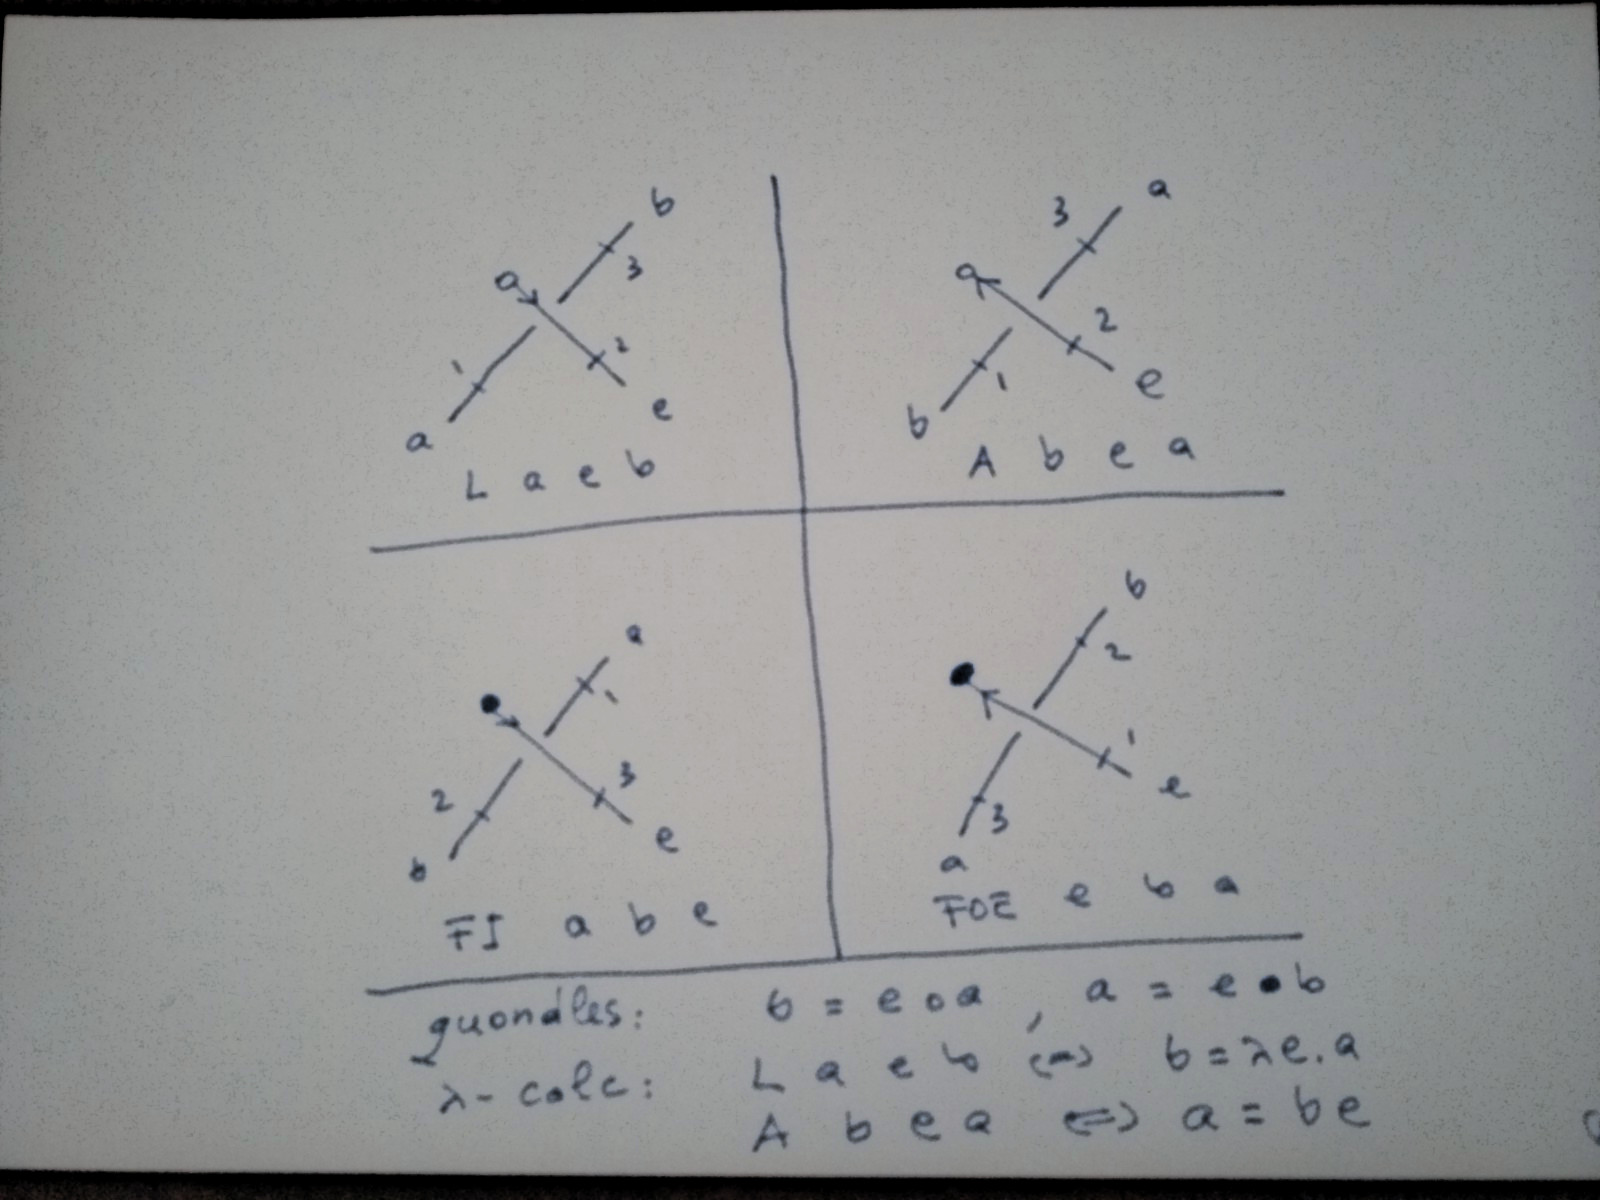 b
3
1
2
a
e
L a e b
a
3
2
1
b
e
A b e a
a
1
2
3
b
e
FI a b e
b
2
1
3
e
a
FOE e b a
quandles: b = e ∘ a , a = e • b
λ-calc: L a e b ⇔ b = λe.a
A b e a ⇔ a = be